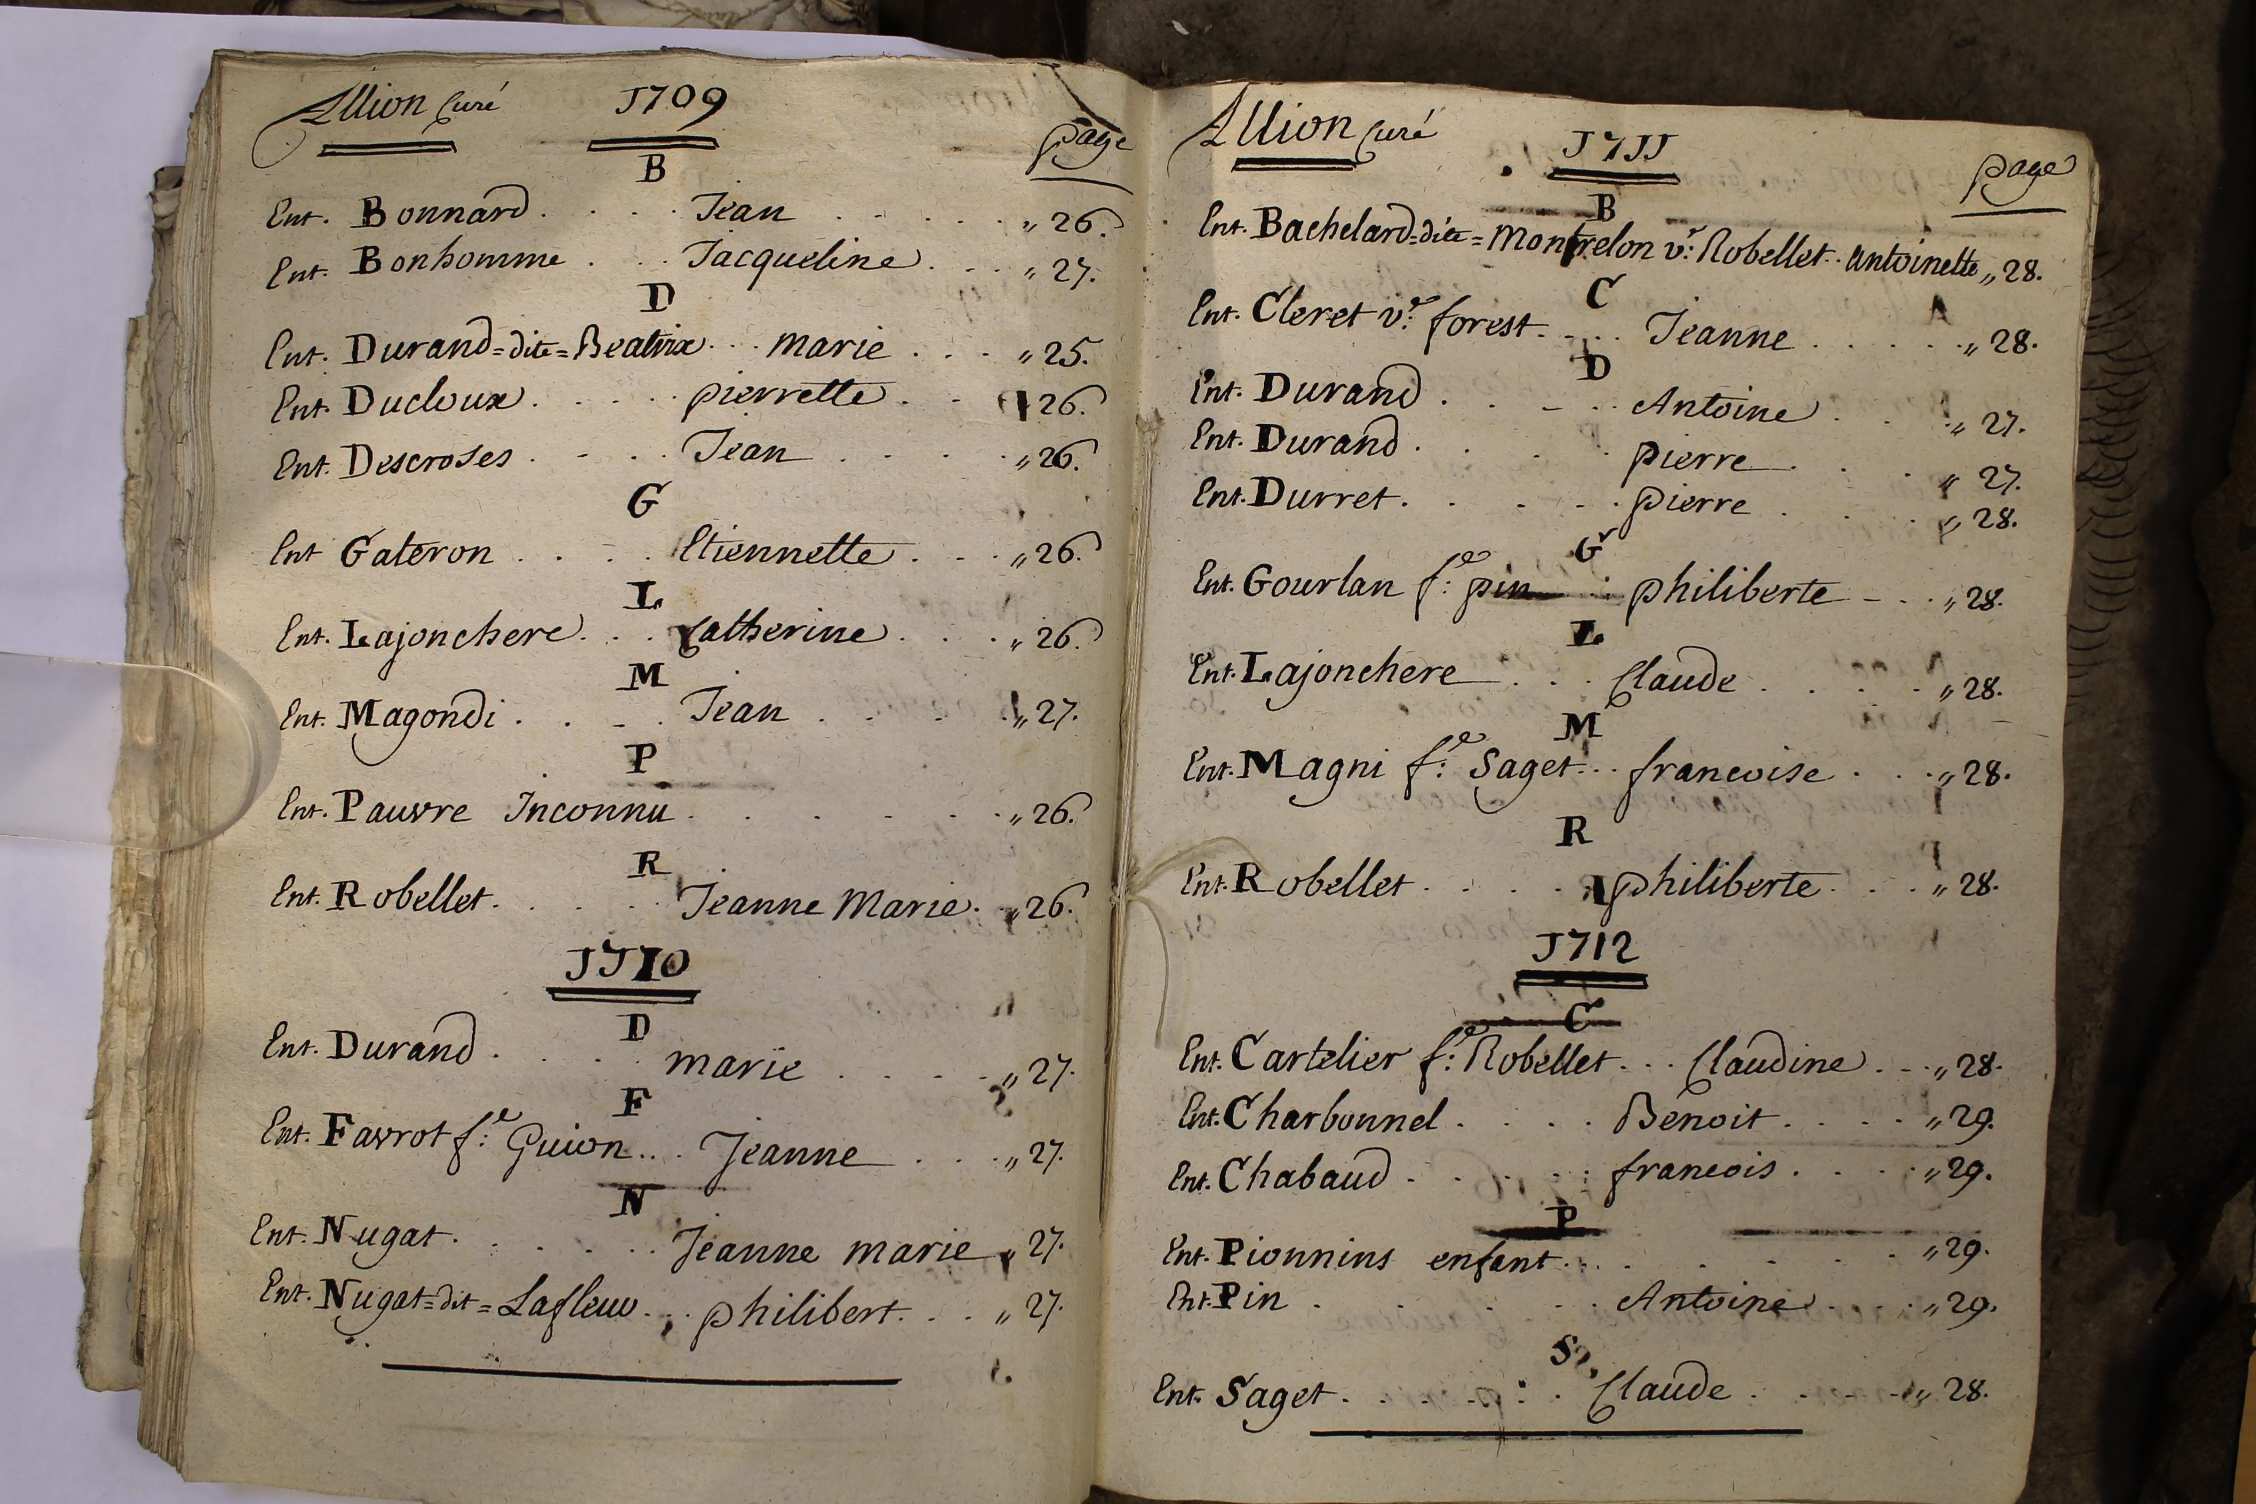 Allion Curé 1709 page
B
Ent. Bonnard. . . . . Jean . . . . . „ 26.
Ent. Bonhomme . . . Jacqueline . . . „ 27.
D
Ent. Durand=dite=Beatrix . . . marie . . . „ 25.
Ent. Ducloux . . . . . pierrette . . 26.
Ent. Descroses . . . . Jean . . . . . „ 26.
G
Ent Gateron . . . . Etiennette . . . „ 26.
L
Ent. Lajonchere . . . Catherine . . . . „ 26.
M
Ent. Magondi . . . . Jean . . . . . „ 27.
P
Ent. Pauvre Inconnu . . . . . . . „ 26.
R
Ent. Robellet . . . . . Jeanne Marie . . „ 26.
1710
D
Ent. Durand . . . . marie . . . . . „ 27.
F
Ent. Favrot f.e Guion . . . Jeanne . . . . „ 27.
N
Ent. Nugat . . . . . . Jeanne marie „ 27.
Ent. Nugat=dit=Lafleur . . . philibert . . . „ 27.
Allion Curé 1711 page
B
Ent. Bachelard=dite=Montrelon v.e Robellet . . Antoinette „ 28.
C
Ent. Cleret v.e forest . . . . Jeanne . . . . . . „ 28.
D
Ent. Durand . . . . . Antoine . . . „ 27.
Ent. Durand . . . . pierre . . . „ 27.
Ent. Durret . . . . . pierre . . . . „ 28.
G
Ent. Gourlan f.e pin . . philiberte . . . „ 28.
L
Ent. Lajonchere . . . Claude . . . . . „ 28.
M
Ent. Magni f.e Saget . . . francoise . . . „ 28.
R
Ent. Robellet . . . . philiberte . . . . „ 28.
1712
C
Ent. Cartelier f.e Robellet . . . Claudine . . . „ 28.
Ent. Charbonnel . . . . Benoit . . . . . „ 29.
Ent. Chabaud . . . . . francois . . . . . „ 29.
P
Ent. Pionnins enfant . . . . . . . . „ 29.
Ent. Pin . . . . . . Antoine . . . . „ 29.
S
Ent. Saget . . . . . . . Claude . . . . . „ 28.